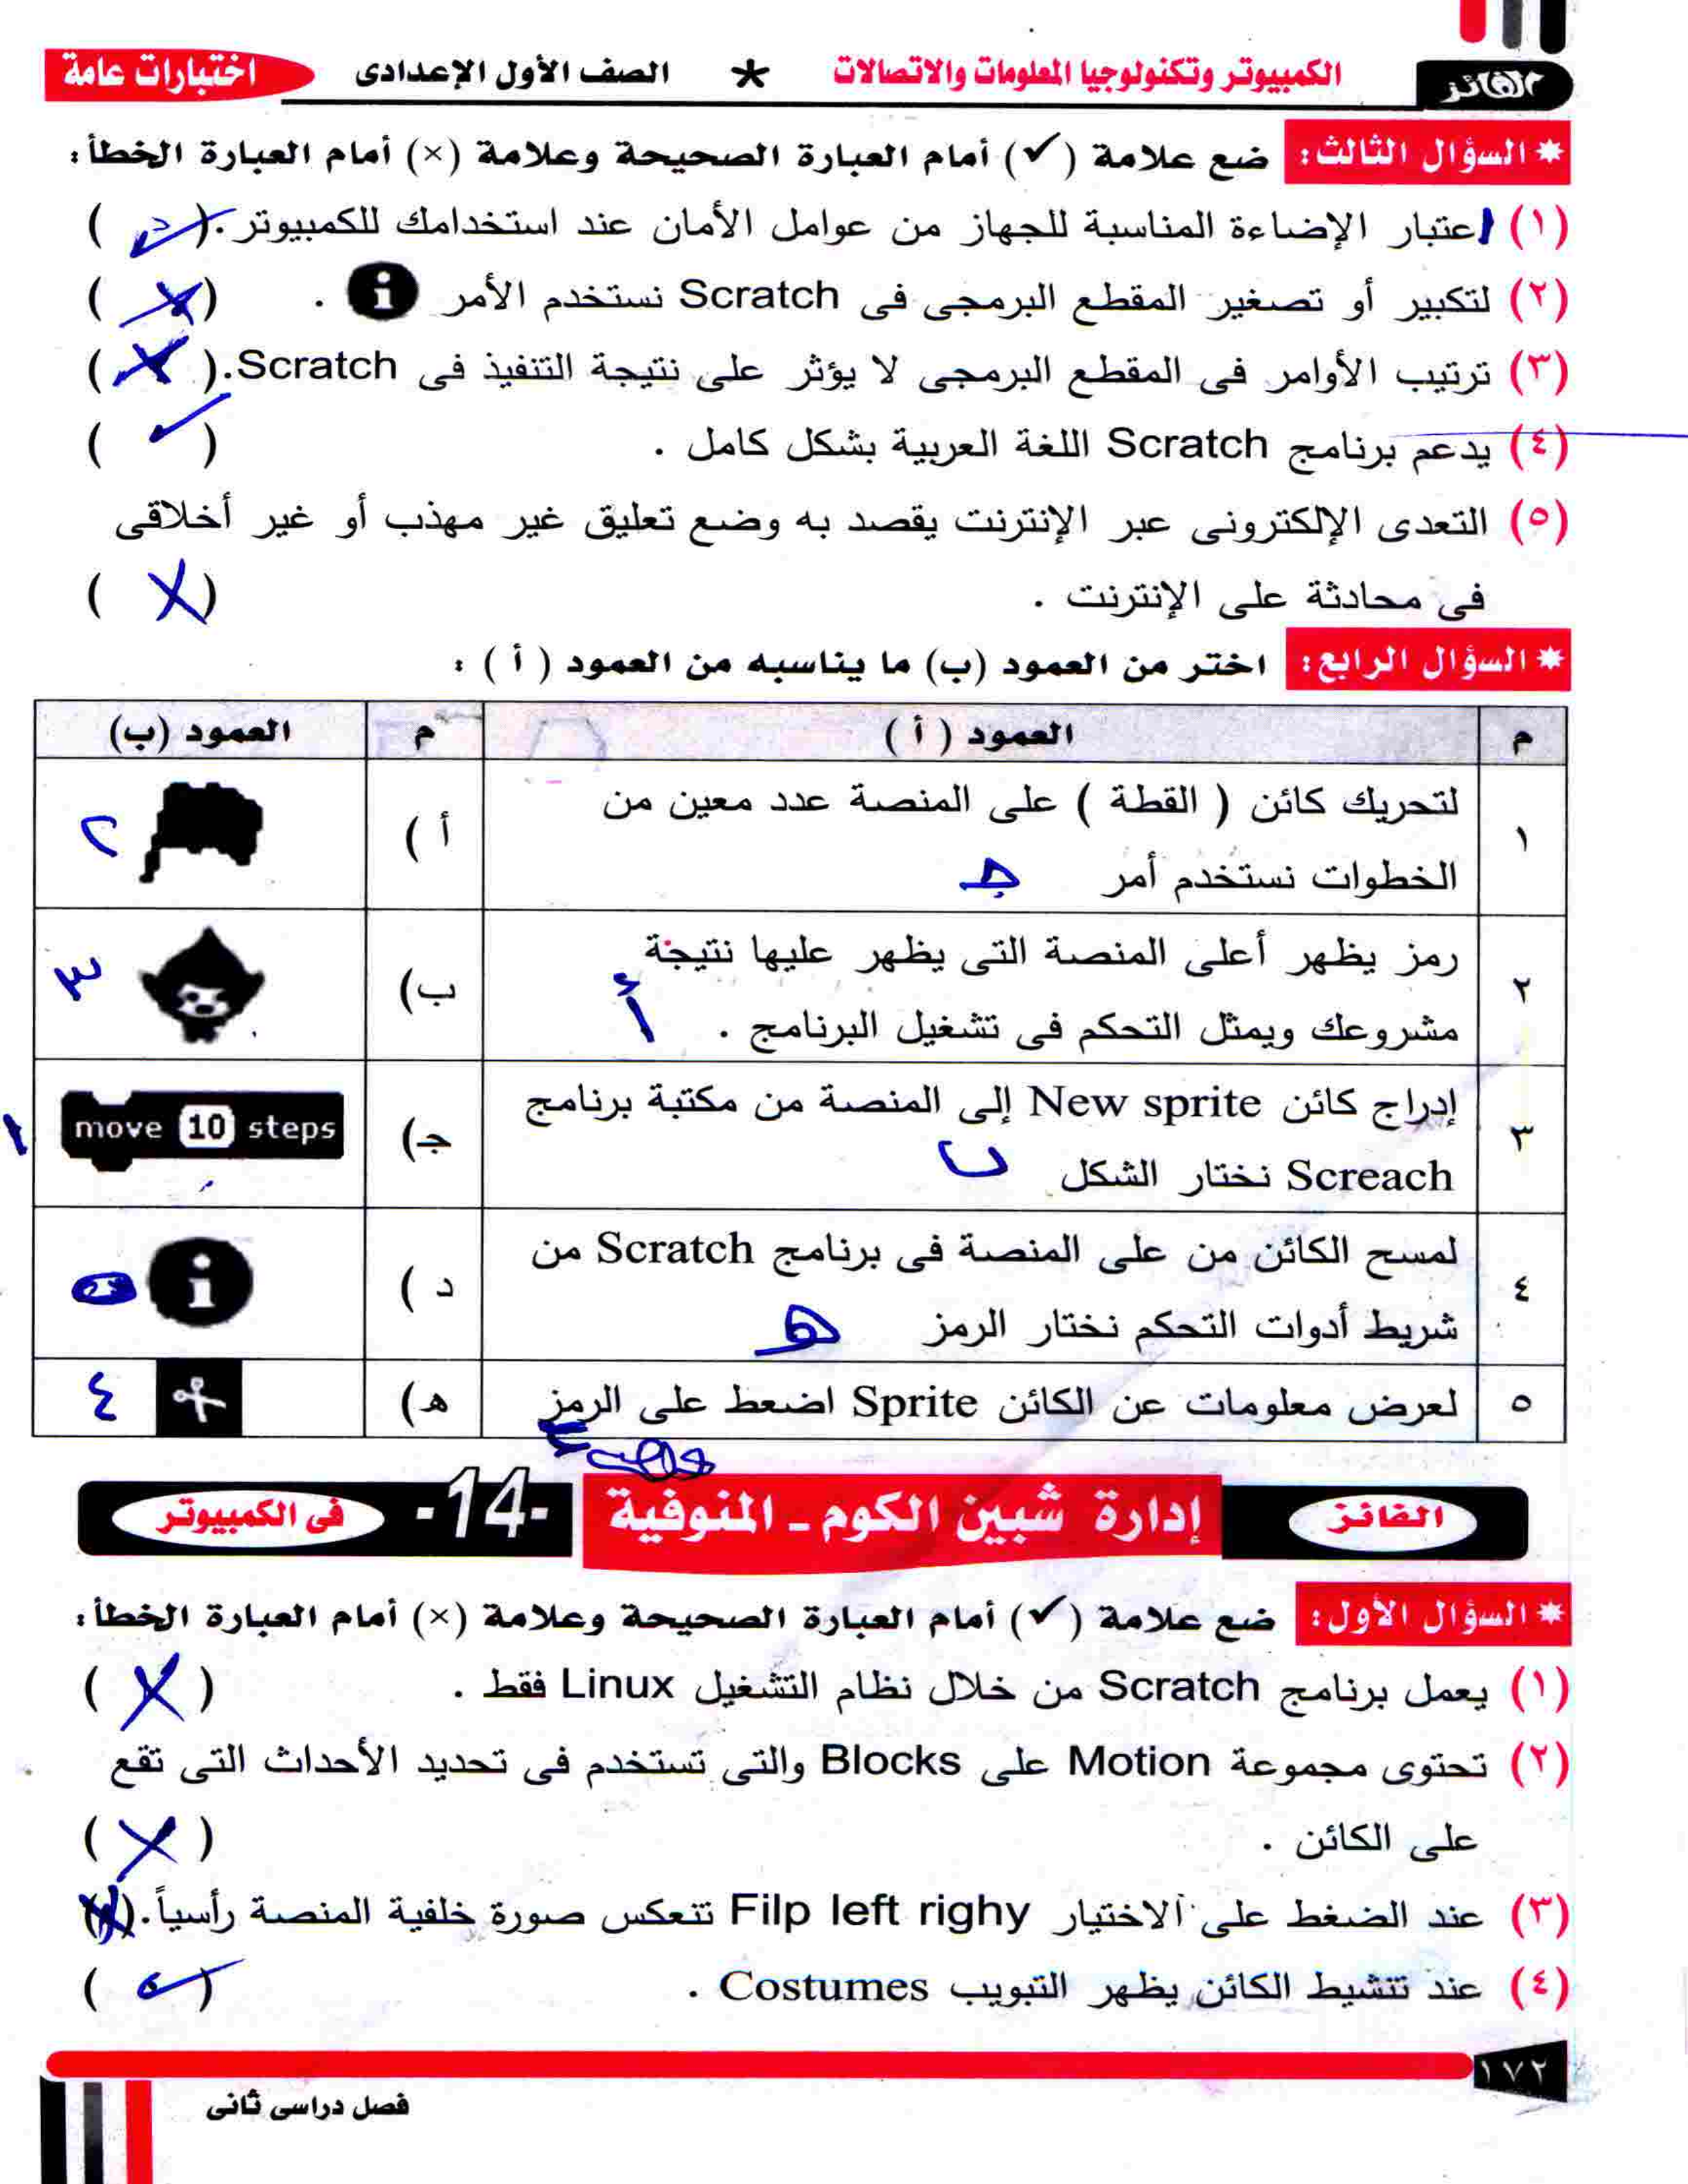 الفائز
الكمبيوتر وتكنولوجيا المعلومات والاتصالات * الصف الأول الإعدادى
اختبارات عامة
* السؤال الثالث: ضع علامة (✓) أمام العبارة الصحيحة وعلامة (×) أمام العبارة الخطأ:
(١) اعتبار الإضاءة المناسبة للجهاز من عوامل الأمان عند استخدامك للكمبيوتر. ( ✓ )
(٢) لتكبير أو تصغير المقطع البرمجى فى Scratch نستخدم الأمر i . ( × )
(٣) ترتيب الأوامر فى المقطع البرمجى لا يؤثر على نتيجة التنفيذ فى Scratch. ( × )
(٤) يدعم برنامج Scratch اللغة العربية بشكل كامل . ( ✓ )
(٥) التعدى الإلكترونى عبر الإنترنت يقصد به وضع تعليق غير مهذب أو غير أخلاقى
فى محادثة على الإنترنت . ( X )
* السؤال الرابع: اختر من العمود (ب) ما يناسبه من العمود ( أ ) :
م العمود ( أ ) م العمود (ب)
١ لتحريك كائن ( القطة ) على المنصة عدد معين من
الخطوات نستخدم أمر جـ
أ ) ٢
٢ رمز يظهر أعلى المنصة التى يظهر عليها نتيجة
مشروعك ويمثل التحكم فى تشغيل البرنامج . أ
ب) ٣
٣ إدراج كائن New sprite إلى المنصة من مكتبة برنامج
Screach نختار الشكل ب
جـ) move 10 steps ١
٤ لمسح الكائن من على المنصة فى برنامج Scratch من
شريط أدوات التحكم نختار الرمز هـ
د ) i
٥ لعرض معلومات عن الكائن Sprite اضعط على الرمز
هـ) ٤
الفائز إدارة شبين الكوم - المنوفية -14- فى الكمبيوتر
* السؤال الأول: ضع علامة (✓) أمام العبارة الصحيحة وعلامة (×) أمام العبارة الخطأ:
(١) يعمل برنامج Scratch من خلال نظام التشغيل Linux فقط . ( X )
(٢) تحتوى مجموعة Motion على Blocks والتى تستخدم فى تحديد الأحداث التى تقع
على الكائن . ( X )
(٣) عند الضغط على الاختيار Filp left righy تتعكس صورة خلفية المنصة رأسياً. ( X )
(٤) عند تتشيط الكائن يظهر التبويب Costumes . ( ✓ )
١٧٢
فصل دراسى ثانى